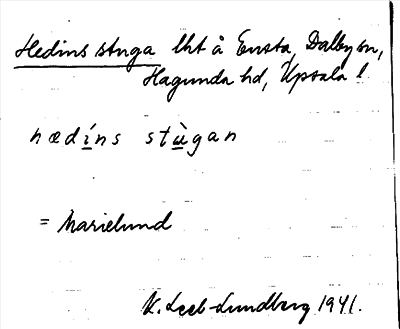 Hedins stuga lht å Ensta, Dalby sn,
Hagunda hd, Upsala l.
hædíns stùgan
= Marielund
K. Leeb-Lundberg 1941.